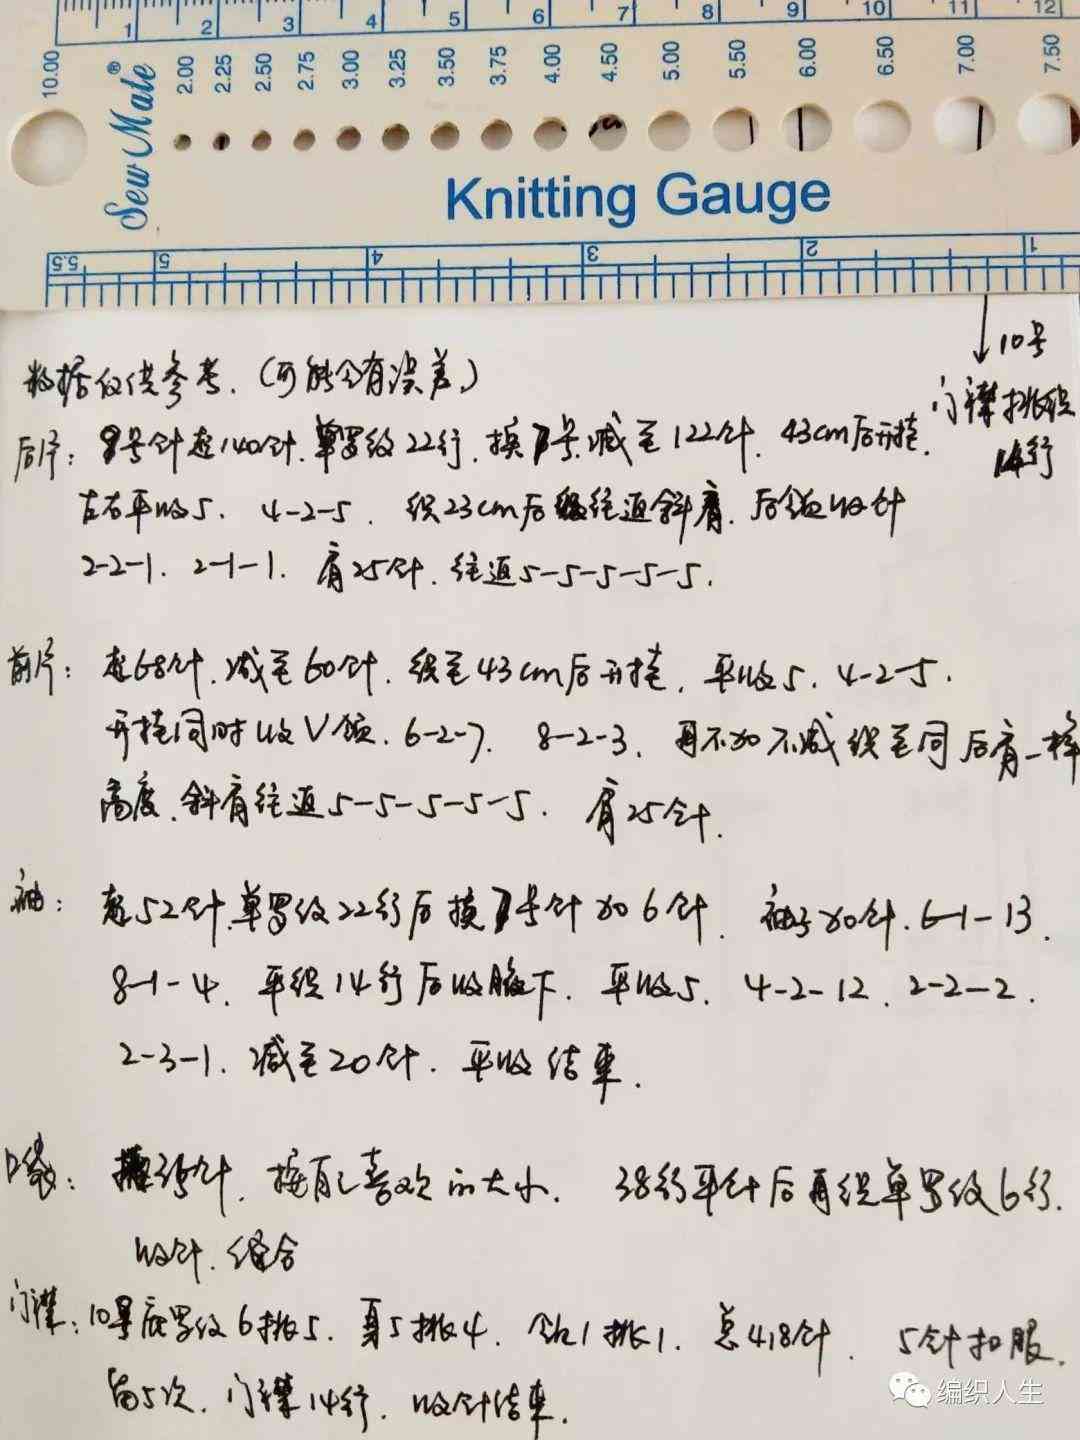 1 2 3 4 5 6 7 8 9 10 11 12
10.00 2.00 2.25 2.50 2.75 3.00 3.25 3.50 3.75 4.00 4.50 5.00 5.50 6.00 6.50 7.00 7.50
Sew Mate®
Knitting Gauge
5.5 5 4 3 2 1
10号
门襟挑织
14行
数据仅供参考.(可能会有误差,)
后片: 8号针起140针.单罗纹22行.换7号.减至122针. 43cm后开挂.
左右平收5. 4-2-5. 织23cm后往返斜肩. 后领收针
2-2-1. 2-1-1. 肩25针.往返5-5-5-5-5.
前片: 起68针.减至60针.织至43cm后开挂. 平收5. 4-2-5.
开挂同时收V领. 6-2-7. 8-2-3. 再不加不减织至同后肩一样
高度.斜肩往返5-5-5-5-5. 肩25针.
袖: 起52针.单罗纹22行后换7号针加6针. 袖子加针.6-1-13.
8-1-4. 平织14行后收腋下. 平收5. 4-2-12. 2-2-2.
2-3-1. 减至20针. 平收结束.
口袋: 35针.按自己喜欢的大小. 38行平针后再织单罗纹6行.
收针.缝合
门襟: 10号底罗纹6挑5. 身5挑4. 领1挑1. 总418针. 5针扣眼.
留5次. 门襟14行. 收针结束.
编织人生